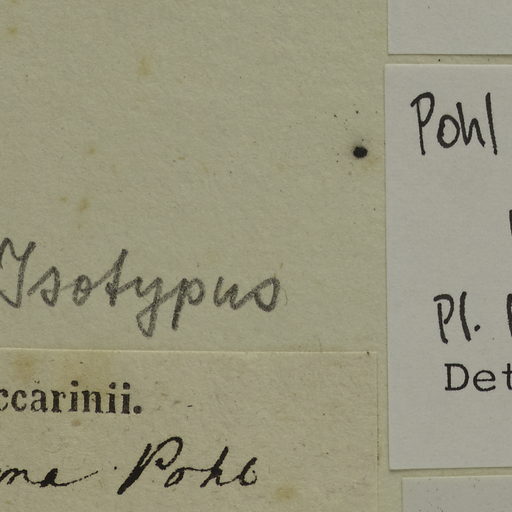 Isotypus
ccarinii.
na Pohl
Pohl
Pl.
Det